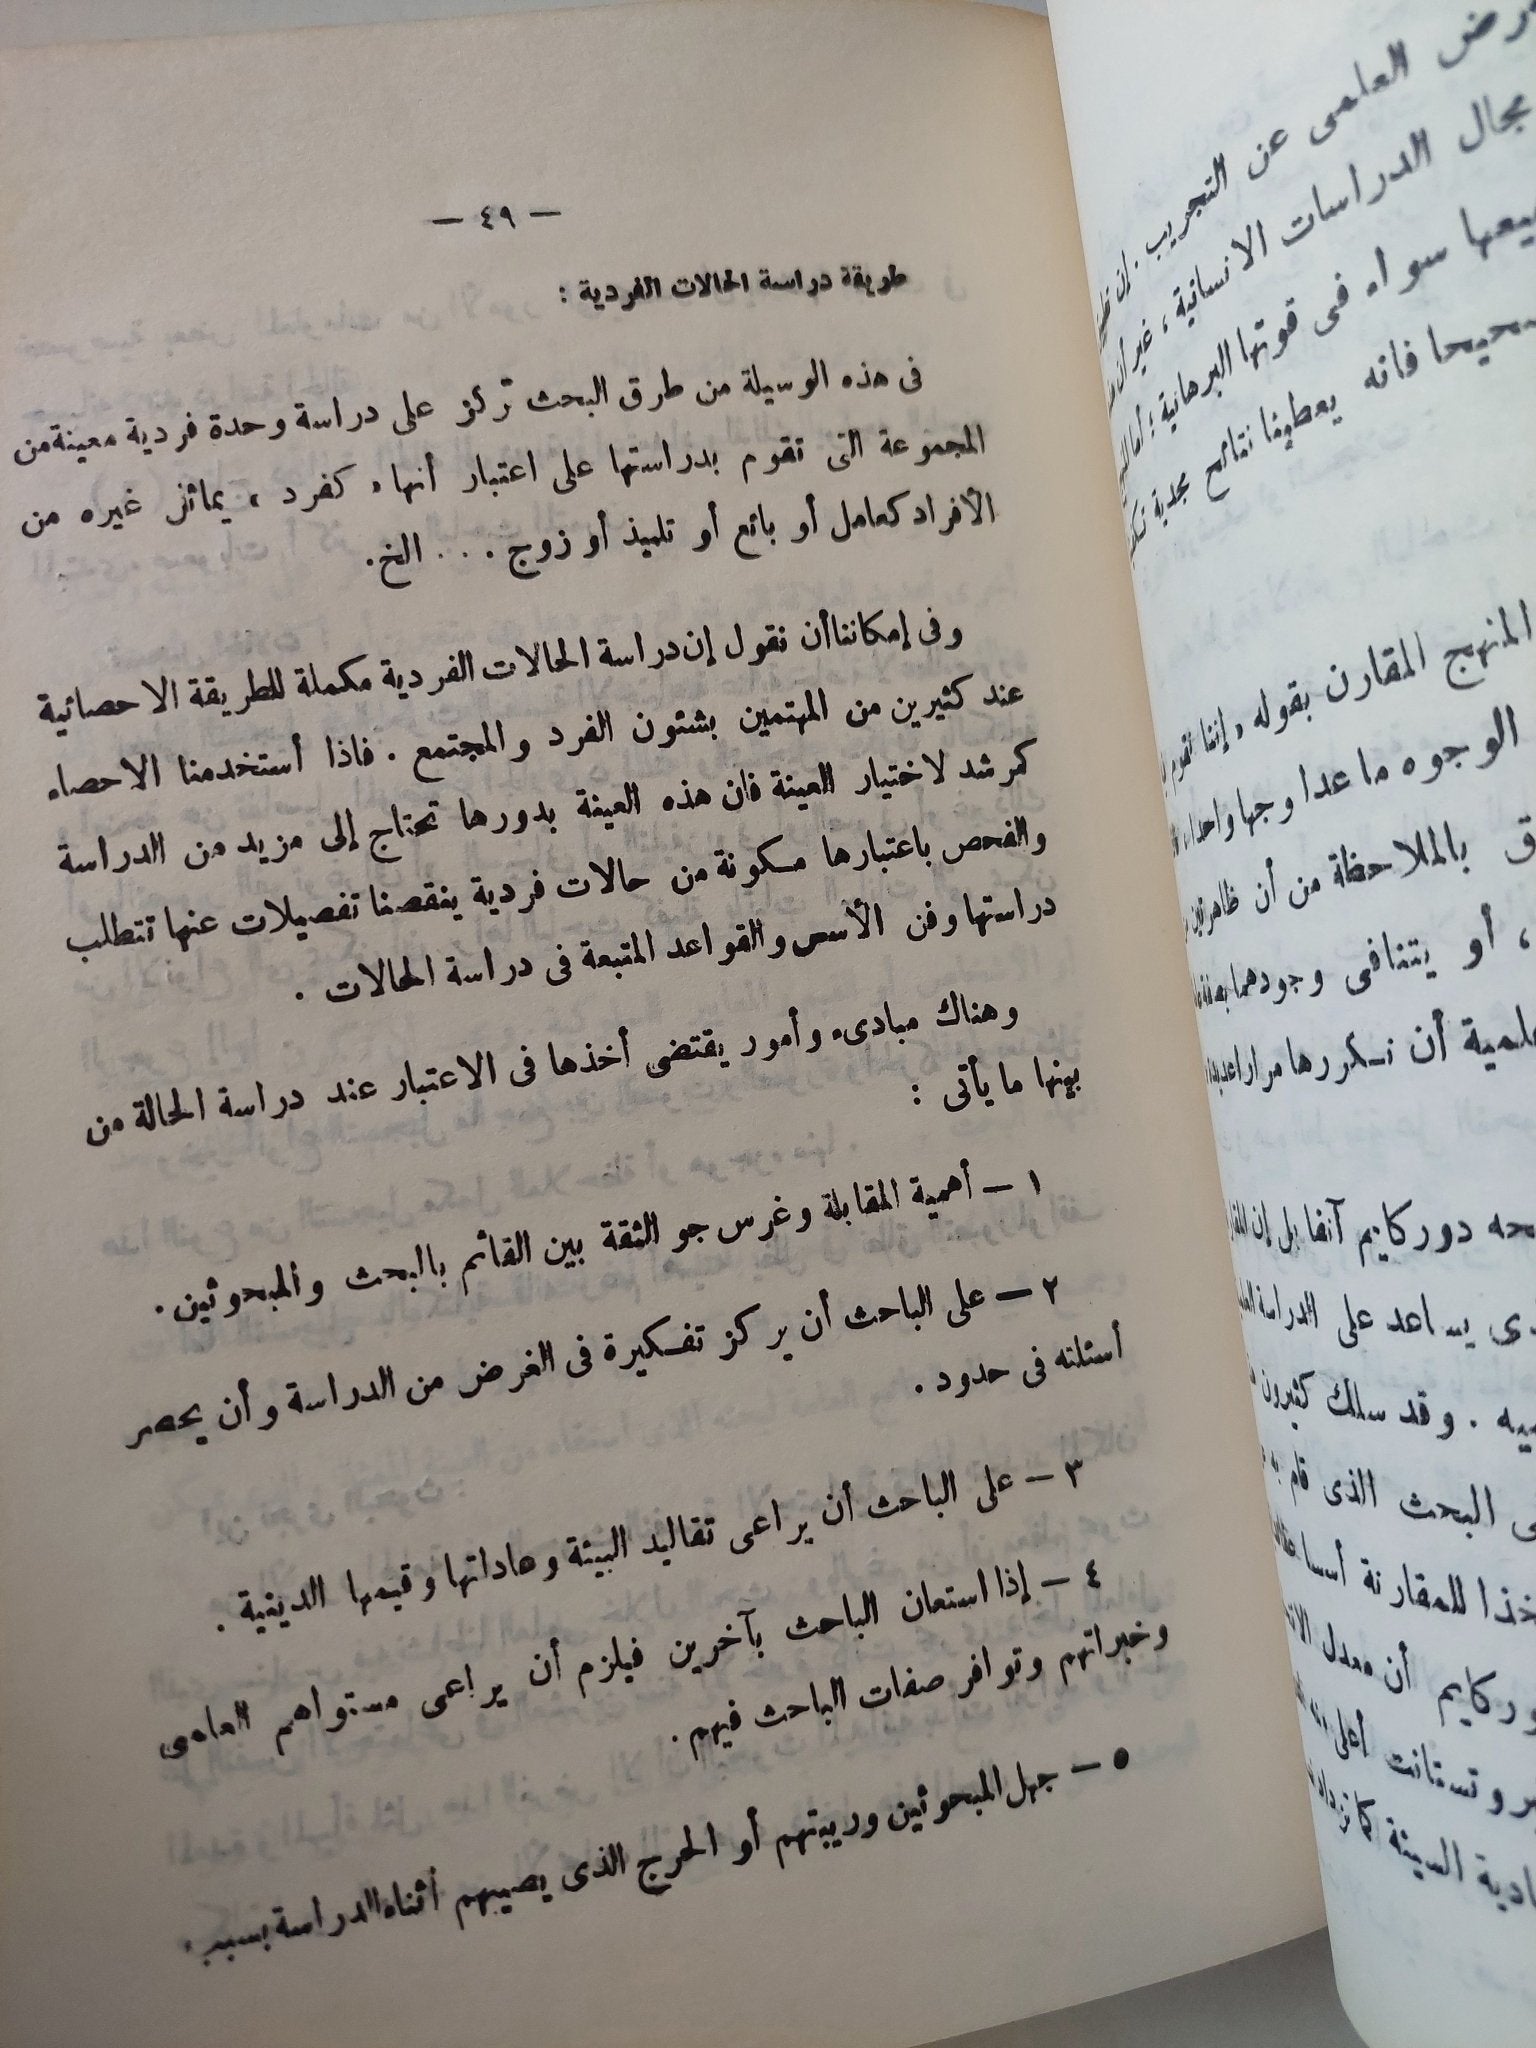 — ٤٩ —
طريقة دراسة الحالات الفردية :
فى هذه الوسيلة من طرق البحث تركز على دراسة وحدة فردية معينة من
المجموعة التى تقوم بدراستها على اعتبار أنها ، كفرد ، يماثل غيره من
الأفراد كعامل أو بائع أو تلميذ أو زوج . . . الخ.
وفى إمكاننا أن نقول إن دراسة الحالات الفردية مكملة للطريقة الاحصائية
عند كثيرين من المهتمين بشئون الفرد والمجتمع . فاذا أستخدمنا الاحصاء
كمرشد لاختيار العينة فان هذه العينة بدورها تحتاج إلى مزيد من الدراسة
والفحص باعتبارها مكونة من حالات فردية ينقصنا تفصيلات عنها تتطلب
دراستها وفن الأسس والقواعد المتبعة فى دراسة الحالات .
وهناك مبادىء وأمور يقتضى أخذها فى الاعتبار عند دراسة الحالة من
بينها ما يأتى :
١ — أهمية المقابلة وغرس جو الثقة بين القائم بالبحث والمبحوثين.
٢ — على الباحث أن يركز تفكيرة فى الغرض من الدراسة وأن يحصر
أسئلته فى حدود .
٣ — على الباحث أن يراعى تقاليد البيئة وعاداتها وقيمها الدينية .
٤ — إذا استعان الباحث بآخرين فيلزم أن يراعى مستواهم العلمى
وخبراتهم وتوافر صفات الباحث فيهم.
٥ — جهل المبحوثين وريبتهم أو الحرج الذى يصيبهم أثناء الدراسة بسبب
العلمى عن التجريب . إن
مجال الدراسات الانسانية ، غير أن
سواء فى قوتها البرهانية ؛ أما
فانه يعطينا نتائج مجدية
المنهج المقارن بقوله ، إننا نقوم
الوجوه ما عدا وجها واحدا
بالملاحظة من أن ظاهرتين
، أو يتنافى وجودهما بصفة
أن نكررها مرارا عديدة
دوركايم آنفا بل إن
يساعد على الدراسة
. وقد سلك كثيرون
البحث الذى قام به
للمقارنة أسسا
أن معدل
أعلى
السيئة كما تزداد